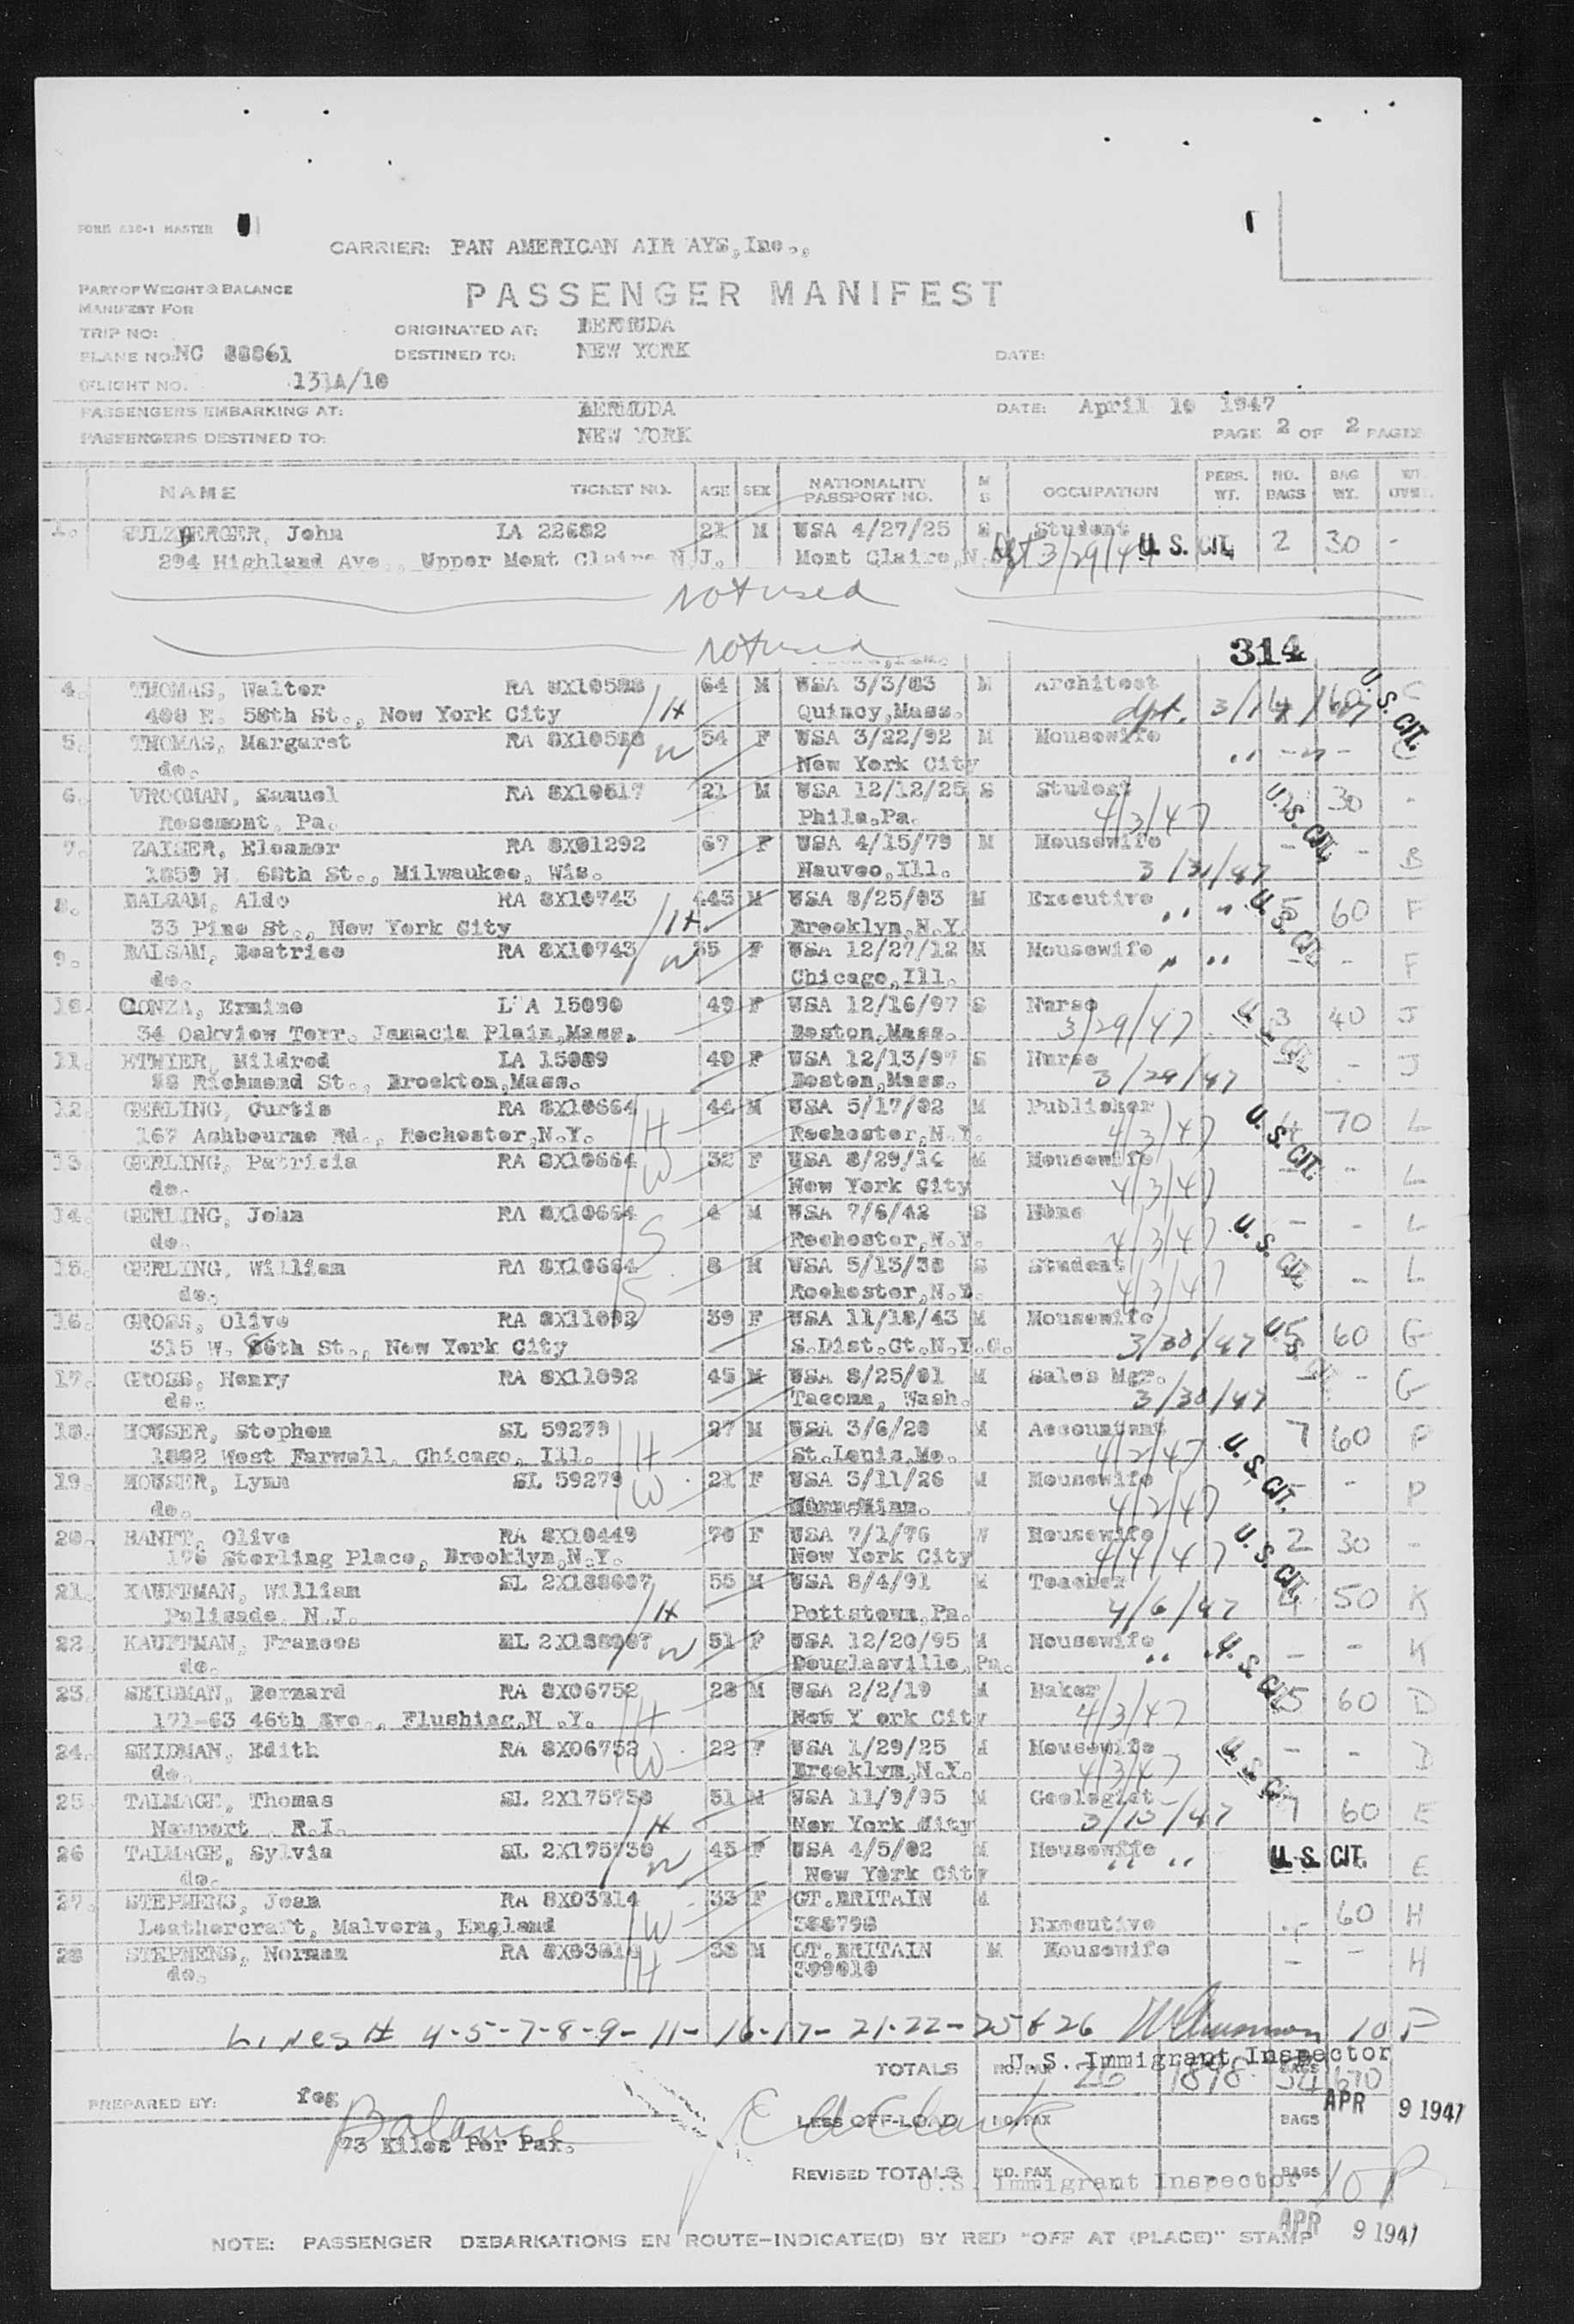 FORM 210-1 MASTER
CARRIER: PAN AMERICAN AIR AYS, Inc.,
PART OF WEIGHT & BALANCE
MANIFEST FOR
PASSENGER MANIFEST
TRIP NO: ORIGINATED AT: BERMUDA
PLANE NO: NC 88861 DESTINED TO: NEW YORK DATE:
FLIGHT NO. 131A/10
PASSENGERS EMBARKING AT: BERMUDA DATE: April 10 1947
PASSENGERS DESTINED TO: NEW YORK PAGE 2 OF 2 PAGES
NAME TICKET NO. AGE SEX NATIONALITY PASSPORT NO. M S OCCUPATION PERS. WT. NO. BAGS BAG WT.
1. SULZBERGER, John LA 22682 21 M USA 4/27/25 S Student U. S. CIT. 2 30 -
294 Highland Ave., Upper Mont Claire N.J. Mont Claire, N.
not used
not used
314
4. THOMAS, Walter RA 8X10588 64 M USA 3/3/83 M Architect U. S. CIT. C
400 E. 58th St., New York City H Quincy, Mass. dpt. 3/
5. THOMAS, Margaret RA 8X10588 W 54 F USA 3/22/92 M Housewife
do. New York City
6. VROOMAN, Samuel RA 8X10617 21 M USA 12/12/25 S Student U. S. CIT. 30 -
Rosemont, Pa. Phila. Pa. 4/3/47
7. ZAISER, Eleanor RA 8X01292 67 F USA 4/15/79 M Housewife - - B
1859 N. 68th St., Milwaukee, Wis. Nauvoo, Ill. 3/31/47
8. BALSAM, Aldo RA 8X10743 43 M USA 8/25/03 M Executive U. S. CIT. 5 60 F
33 Pine St., New York City H Brooklyn, N.Y.
9. BALSAM, Beatrice RA 8X10743 W 35 F USA 12/27/12 M Housewife - - F
do. Chicago, Ill.
10. GONZA, Ermine L'A 15090 49 F USA 12/16/97 S Nurse U. S. CIT. 3 40 J
34 Oakview Terr. Jamacia Plain, Mass. Boston, Mass. 3/29/47
11. ETWIER, Mildred LA 15089 49 F USA 12/13/97 S Nurse - - J
88 Richmond St., Brockton, Mass. Boston, Mass. 3/29/47
12. GERLING, Curtis RA 8X10664 H 44 M USA 5/17/02 M Publisher U. S. CIT. 4 70 L
167 Ashbourne Rd., Rochester, N.Y. Rochester, N.Y. 4/3/47
13. GERLING, Patricia RA 8X10664 W 32 F USA 8/29/14 M Housewife - - L
do. New York City 4/3/47
14. GERLING, John RA 8X10664 S 4 M USA 7/6/42 S Home U. S. CIT. - - L
do. Rochester, N.Y. 4/3/47
15. GERLING, William RA 8X10664 S 8 M USA 5/13/38 S Student - L
do. Rochester, N.Y. 4/3/47
16. GROSS, Olive RA 8X11092 39 F USA 11/18/43 M Housewife U. S. CIT. 5 60 G
315 W. 86th St., New York City S. Dist. Ct. N.Y.C. 3/30/47
17. GROSS, Henry RA 8X11092 45 M USA 8/25/01 M Sales Mgr. - G
do. Tacoma, Wash. 3/30/47
18. HOUSER, Stephen SL 59279 H 27 M USA 3/6/20 M Accountant 7 60 P
1802 West Farwell, Chicago, Ill. St. Louis, Mo. 4/2/47 U. S. CIT.
19. HOUSER, Lynn SL 59279 W 21 F USA 3/11/26 M Housewife - P
do. 4/2/47
20. HANFT, Olive RA 8X10449 70 F USA 7/1/76 W Housewife U. S. CIT. 2 30 -
176 Sterling Place, Brooklyn, N.Y. New York City 4/4/47
21. KAUFFMAN, William SL 2X188607 55 M USA 8/4/91 M Teacher 4 50 K
Palisade, N.J. H Pottstown, Pa. 4/6/47
22. KAUFFMAN, Frances SL 2X188607 W 51 F USA 12/20/95 M Housewife U. S. CIT. - - K
do. Douglasville, Pa.
23. SKIDMAN, Bernard RA 8X06752 28 M USA 2/2/19 M Baker 5 60 D
171-63 46th Ave., Flushing, N.Y. H New York City 4/3/47
24. SKIDMAN, Edith RA 8X06752 W 22 F USA 1/29/25 M Housewife U. S. CIT. - - D
do. Brooklyn, N.Y. 4/3/47
25. TALMAGE, Thomas SL 2X175730 51 M USA 11/9/95 M Geologist 7 60 E
Newport, R.I. H New York City 3/13/47
26 TALMAGE, Sylvia SL 2X175730 W 45 F USA 4/5/02 M Housewife U. S. CIT. E
do. New York City
27. STEPHENS, Joan RA 8X03214 33 F GT. BRITAIN M 60 H
Leathercraft, Malvern, England W 388798 Executive
28 STEPHENS, Norman 38 M GT. BRITAIN M Housewife - - H
do. H 309010
Lines # 4-5-7-8-9-11-16-17-21-22-25 & 26 10 P
U. S. Immigrant Inspector
TOTALS NO. PAX 26 1898 BAGS 54 1670
APR 9 1947
PREPARED BY: feg
Balance
73 Kilos Per Pax.
LESS OFF-LOAD NO. PAX BAGS
REVISED TOTALS NO. PAX BAGS 10 P
U.S. Immigrant Inspector
APR 9 1947
NOTE: PASSENGER DEBARKATIONS EN ROUTE-INDICATE(D) BY RED "OFF AT (PLACE)" STAMP